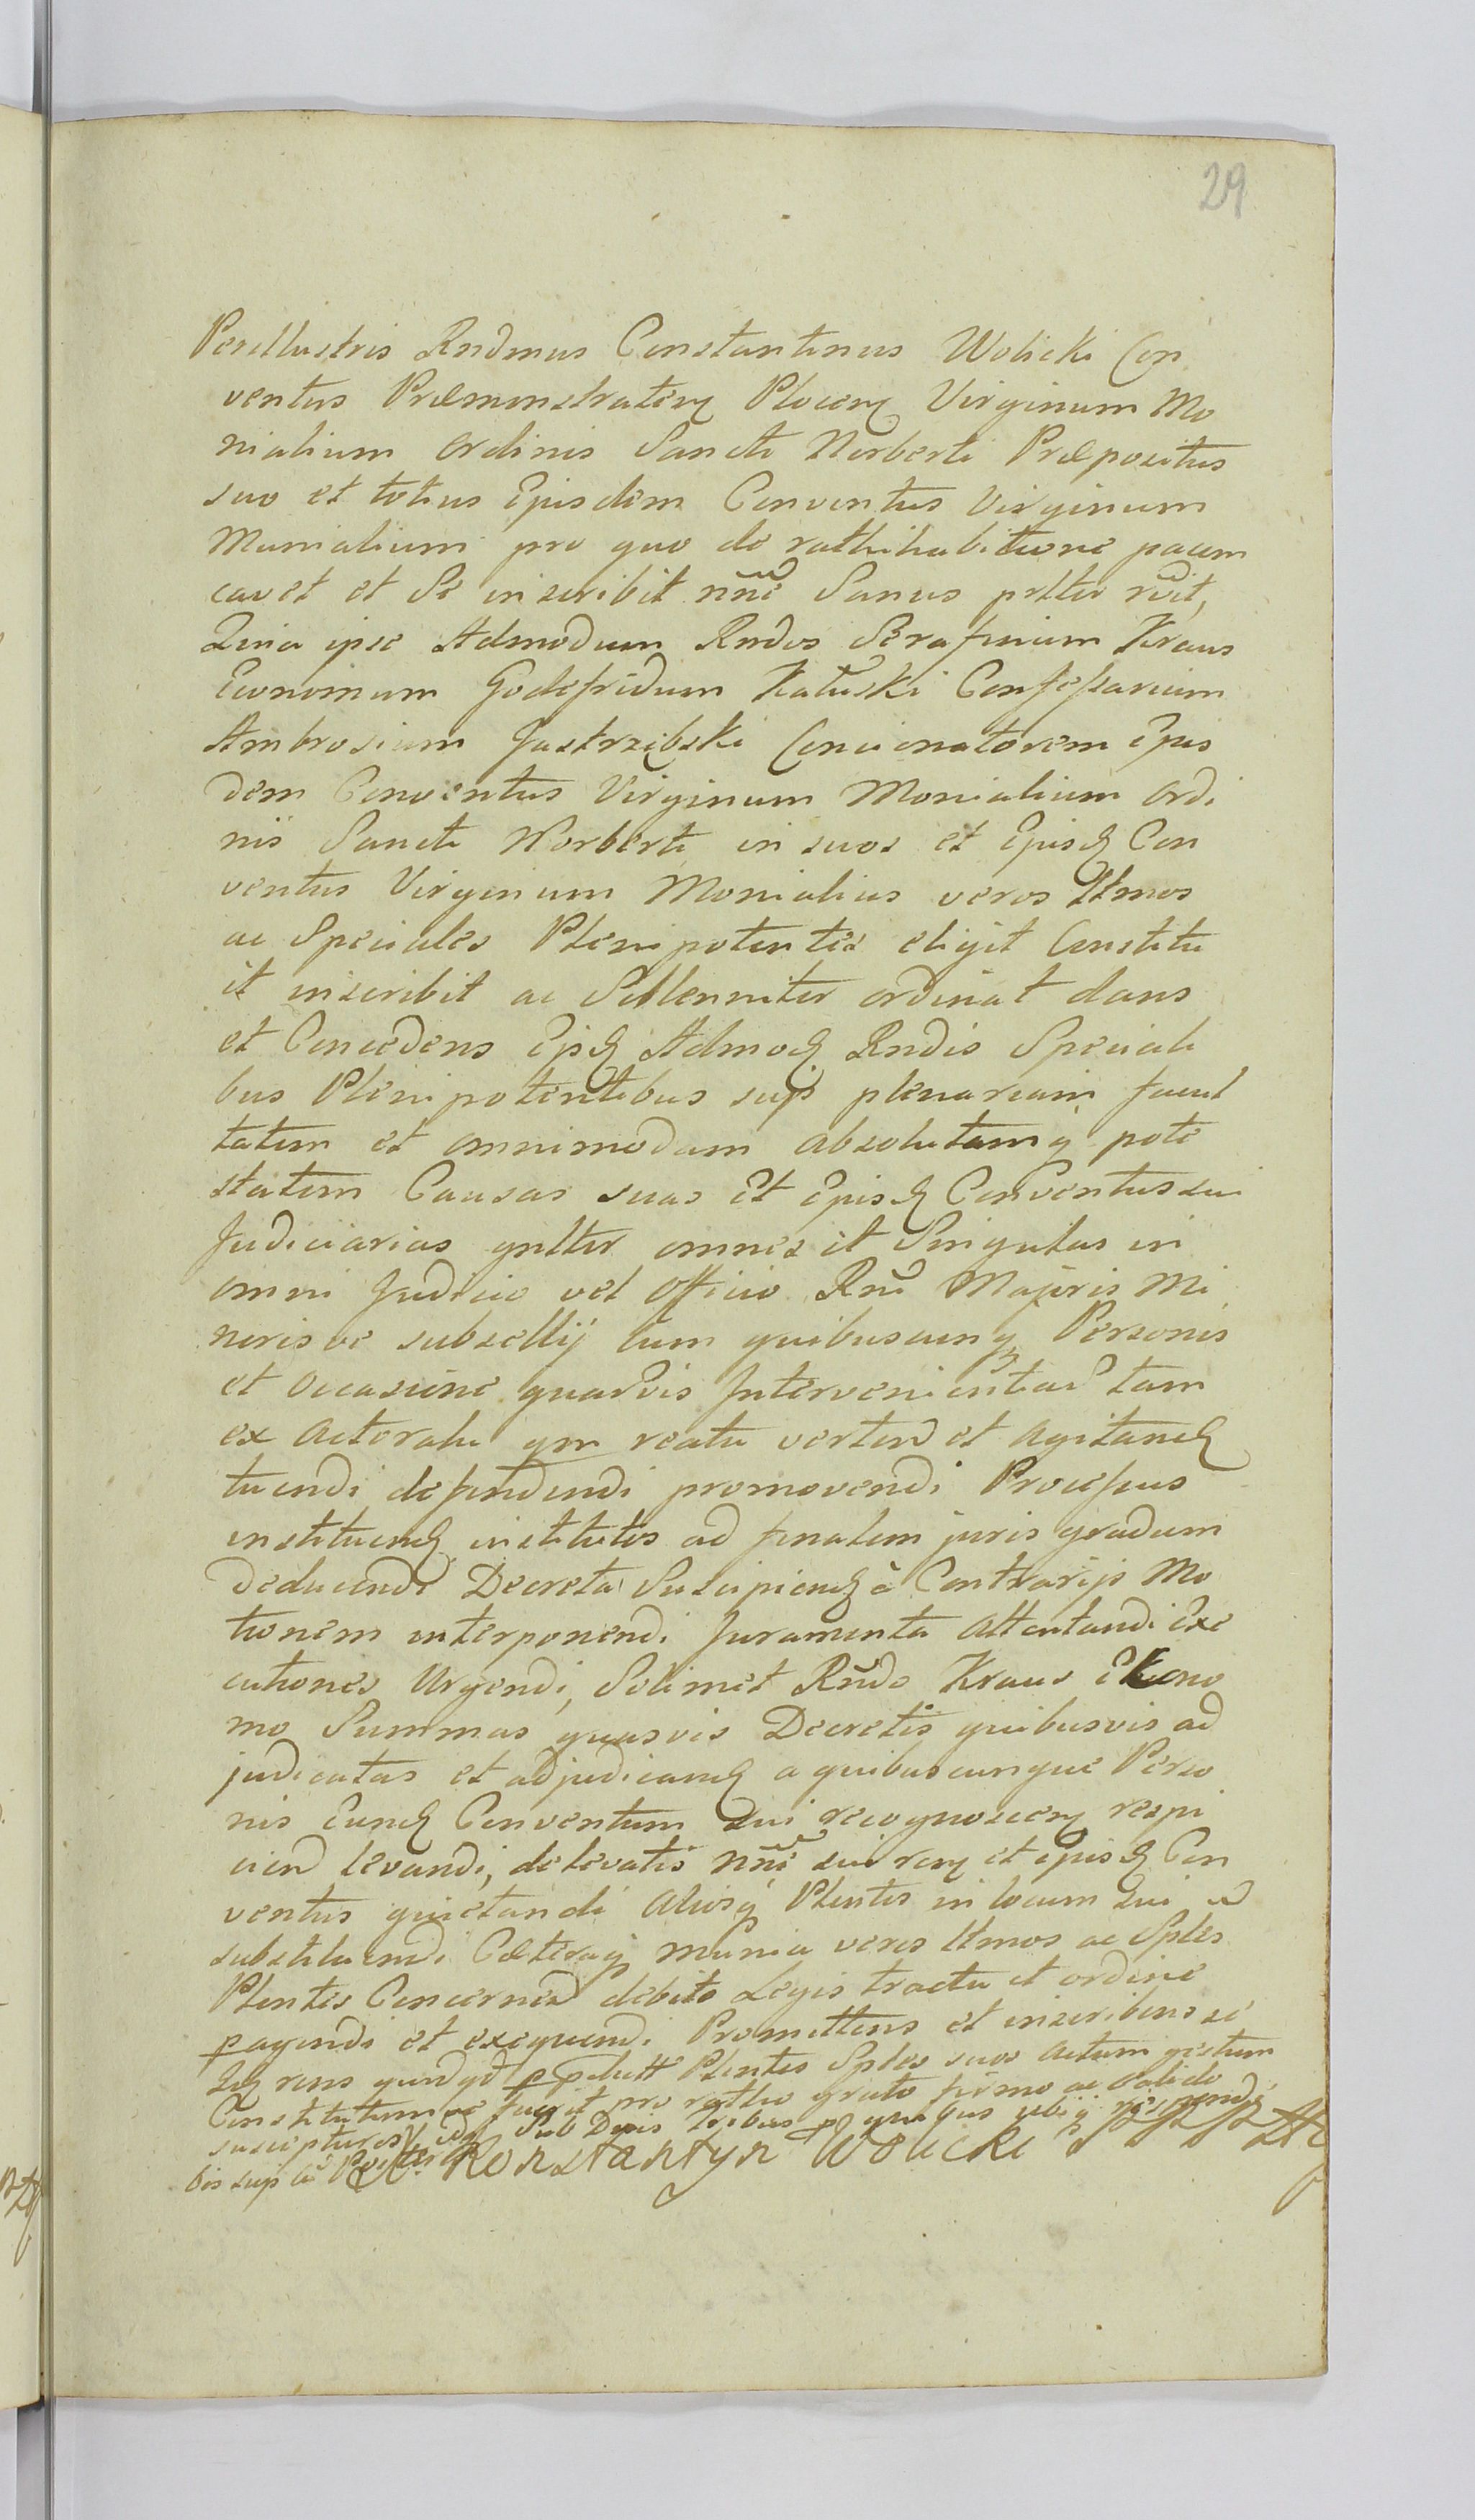 29
Perillustris Rndmus Constantinus Wolicki Con
ventus Præmonstraten Plocen Virginum Mo
nialium Ordinis Sancti Norberti Præpositus
suo et totius Ejusdem Conventus Virginum
Monialium pro quo de rathihabitione pacum
cavet et Se inscribit nñe Sanus psltr rvit,
Quia ipse Admodum Rndos Serafinum Kraus
Economum Godefridum Kałuski Confessarium
Ambrosium Jastrzębski Concionatorem Ejus
dem Conventus Virginum Monialium Ordi
nis Sancti Norberti in suos et Ejusd Con
ventus Virginum Monialius veros Ltmos
ac Speciales Plenipotentes eligit Constitu
it inscribit ac Sollenniter ordinat dans
et Concedens Ejsd Admod Rndis Speciali
bus Plenipotentibus suis plenariam facul
tatem et omnimodam absolutamq pote
statem Causas suas Et Ejusd Conventus sui
Judiciarias gnltr omnes et Singulas in
omni Judicio vel Officio Rni Majoris Mi
noris ve subsellij cum quibuscunq Personis
et occasione quarvis Intervenientiar tam
ex Actoratu qm reatu vertend et agitand
tuendi defendendi promovendi Processus
instituend institutos ad finalem juris gradum
deducendi Decreta Suscipiend à Contrarijs Mo
tionem interponendi Juramenta Attentandi Exe
cutiones Urgendi, Solimet Rndo Kraus Ekono
mo Summas quasvis Decretis quibusvis ad
judicatas et adjudicand a quibuscunque Perso
nis Eund Conventum sui recognoscen respi
cien levandi, de levatis nñe sui ren et Ejusd Con
ventus quietandi Aliosq Plentes in locum sui
substituendi Cæteraq munia veros Ltmos ac Sples
Plentes Concernen debito Legis tractu et ordine
pagendi et exequendi. Promittens et inscribens se
Idq rens quidqd p Plentes Sples suos Actum gestum
Constitutum ve fuerit pro ratho grato firmo ac valido
suscepturos Sub Dnis
X. Konstantyn Wolicki